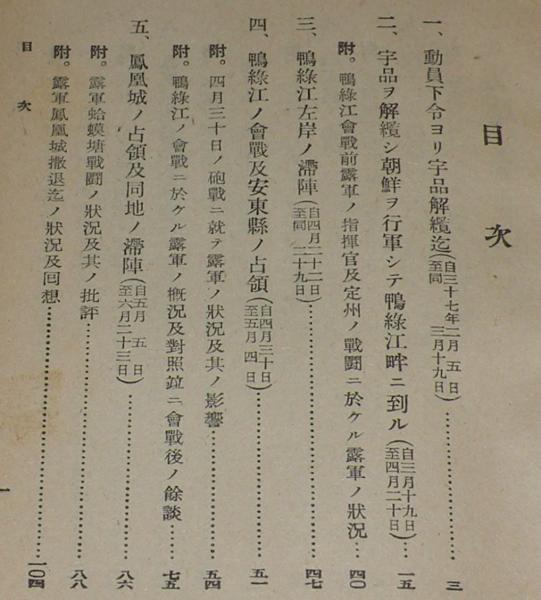 目次
一、動員下令ヨリ宇品解纜迄(自三十七年二月五日至同三月十九日)……三
二、宇品ヲ解纜シ朝鮮ヲ行軍シテ鴨綠江畔ニ到ル(自三月十九日至四月二十日)…一五
附。鴨綠江會戰前露軍ノ指揮官及定州ノ戰鬪ニ於ケル露軍ノ狀況…四〇
三、鴨綠江左岸ノ滯陣(自四月二十二日至同二十九日)……四七
四、鴨綠江ノ會戰及安東縣ノ占領(自四月三十日至五月四日)……五一
附。四月三十日ノ砲戰ニ就テ露軍ノ狀況及其ノ影響……五四
附。鴨綠江ノ會戰ニ於ケル露軍ノ槪況及對照竝ニ會戰後ノ餘談……七五
五、鳳凰城ノ占領及同地ノ滯陣(自五月五日至六月二十三日)……八六
附。露軍蛤蟆塘戰鬪ノ狀況及其ノ批評……八八
附。露軍鳳凰城撤退迄ノ狀況及回想……一〇四
目次
一